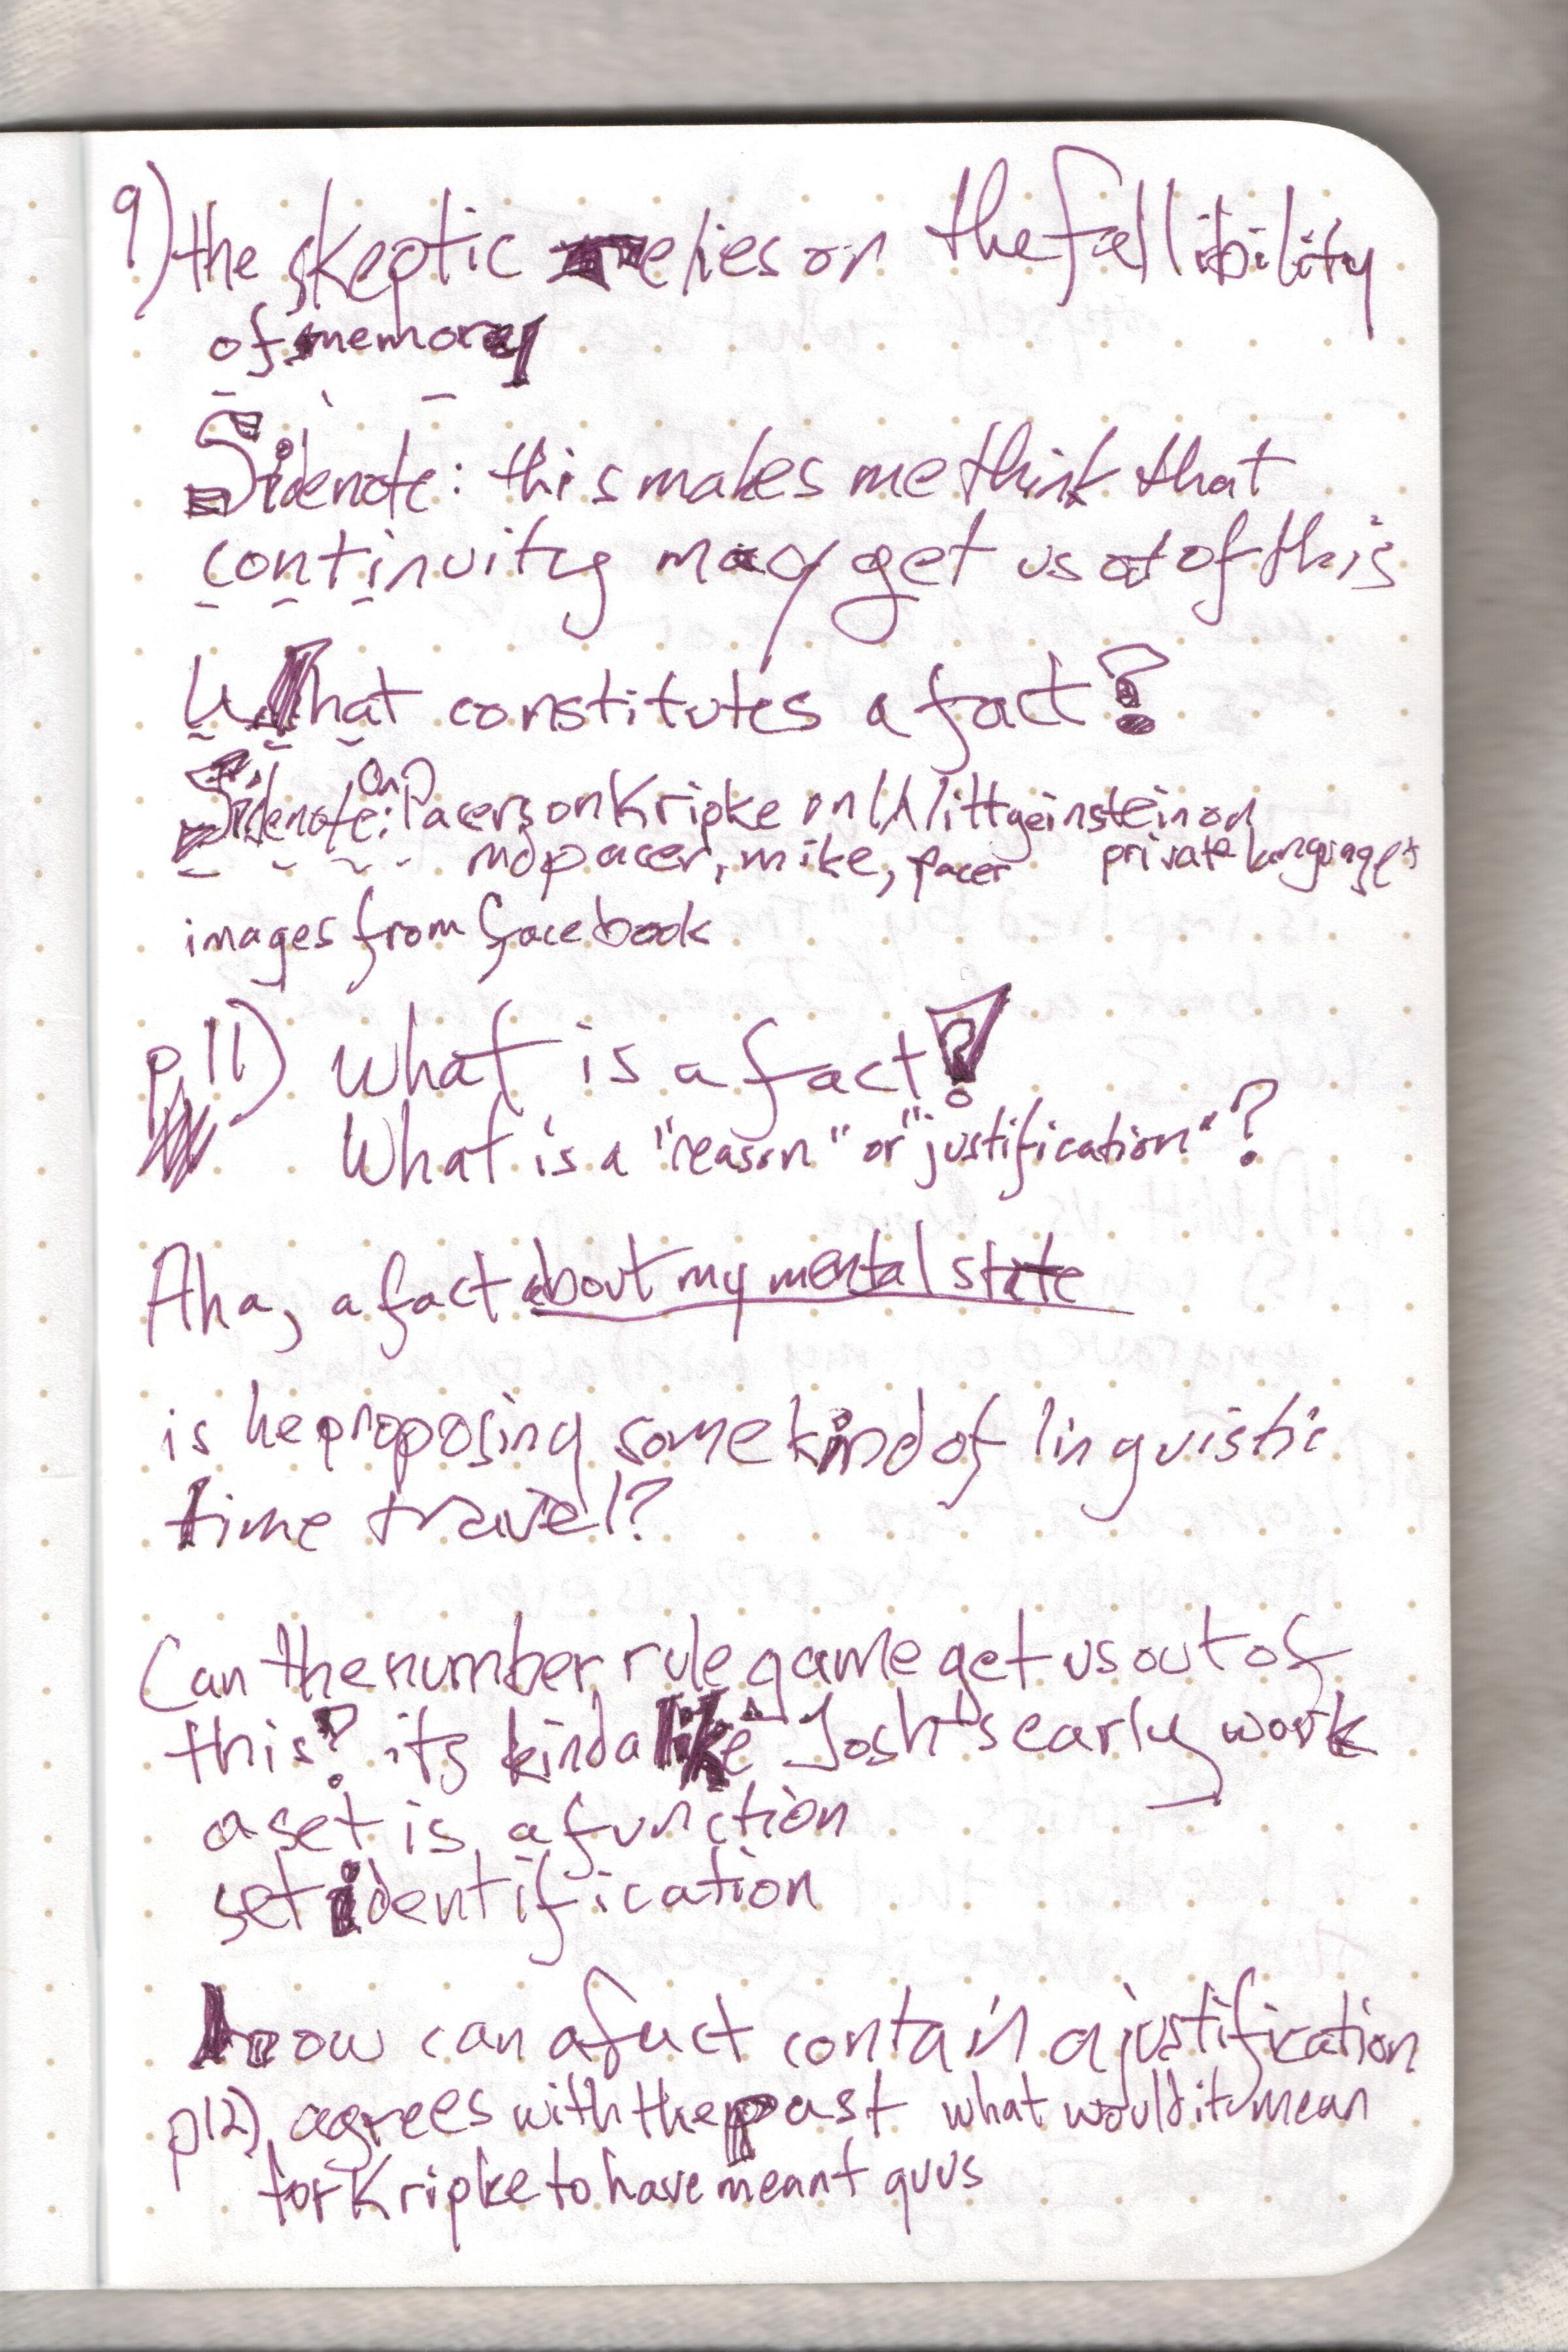 9) the skeptic relies on the fallibility
of memory
Sidenote: this makes me think that
continuity may get us out of this
What constitutes a fact?
Sidenote: On Pacers on Kripke on Wittgeinstein on
mdpacer, mike, pacer private languages
images from facebook
p.11) What is a fact?
What is a "reason" or "justification"?
Aha, a fact about my mental state
is he proposing some kind of linguistic
time travel?
Can the number rule game get us out of
this? its kinda like Josh's early work
a set is a function
set identification
how can a fact contain a justification
p12) agrees with the past what would it mean
for Kripke to have meant quus